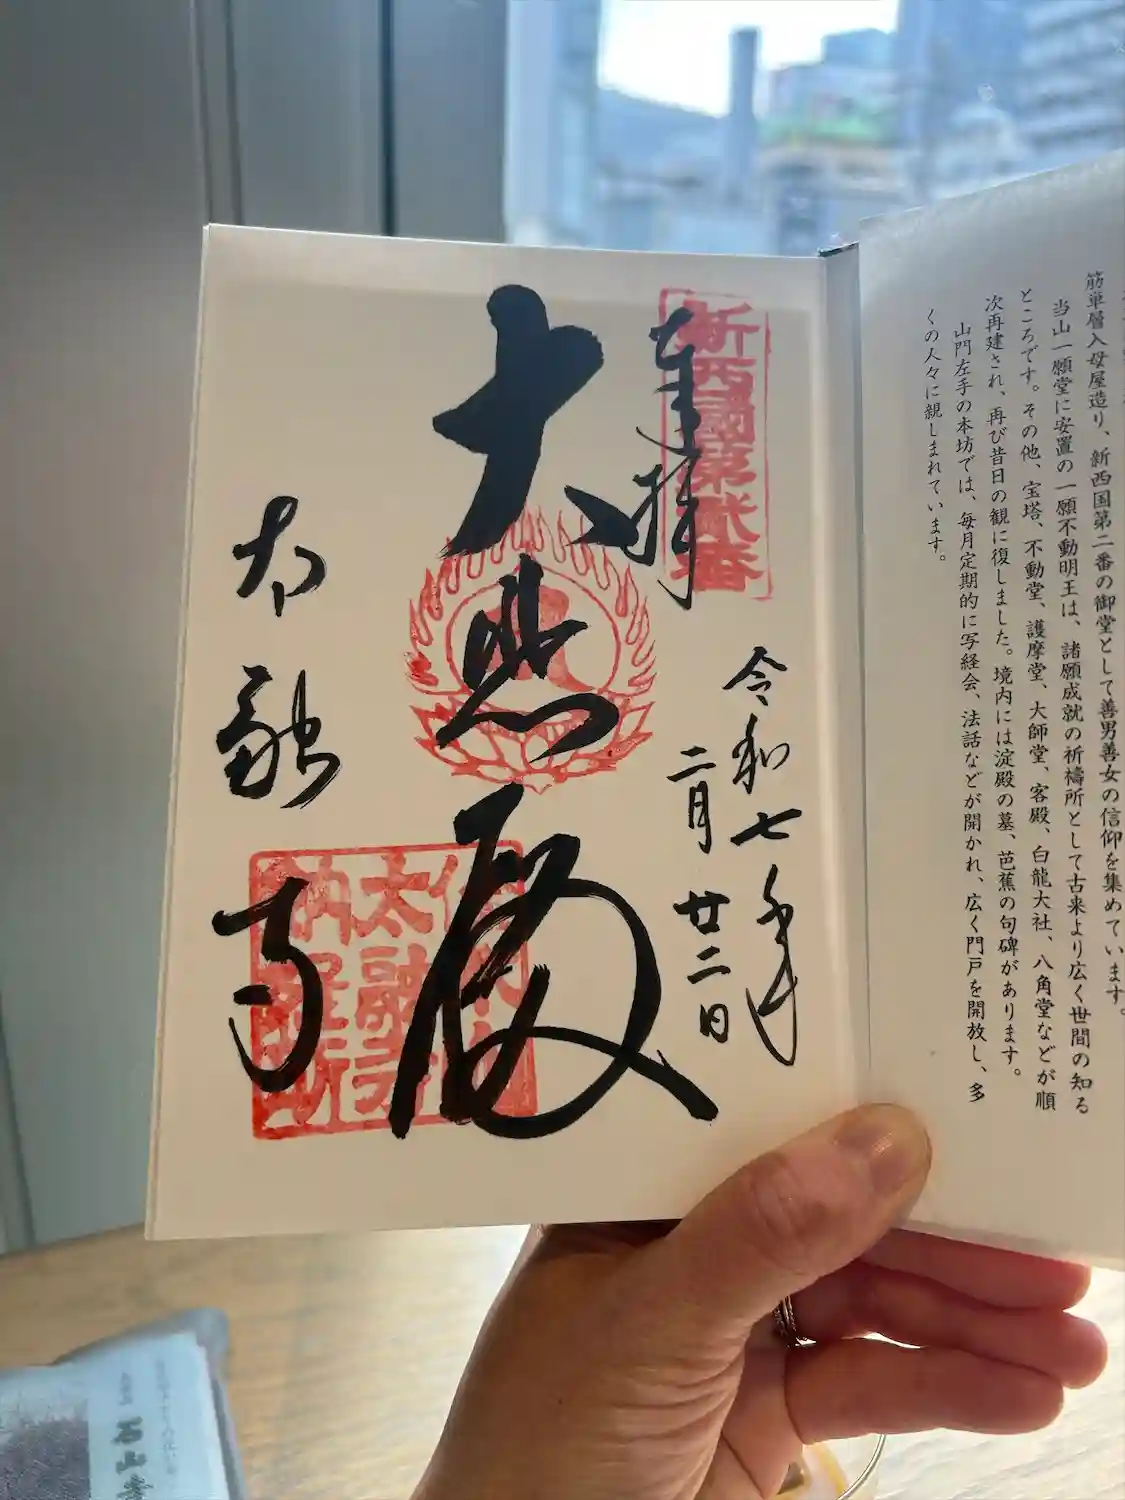 筋単層入母屋造り、新西国第二番の御堂として善男善女の信仰を集めています。
当山一願堂に安置の一願不動明王は、諸願成就の祈禱所として古来より広く世間の知る
ところです。その他、宝塔、不動堂、護摩堂、大師堂、客殿、白龍大社、八角堂などが順
次再建され、再び昔日の観に復しました。境内には淀殿の墓、芭蕉の句碑があります。
山門左手の本坊では、毎月定期的に写経会、法話などが開かれ、広く門戸を開放し、多
くの人々に親しまれています。
新西國第貮番
奉拝
令和七年
二月廿二日
大悲殿
太融寺
太融寺
石山寺